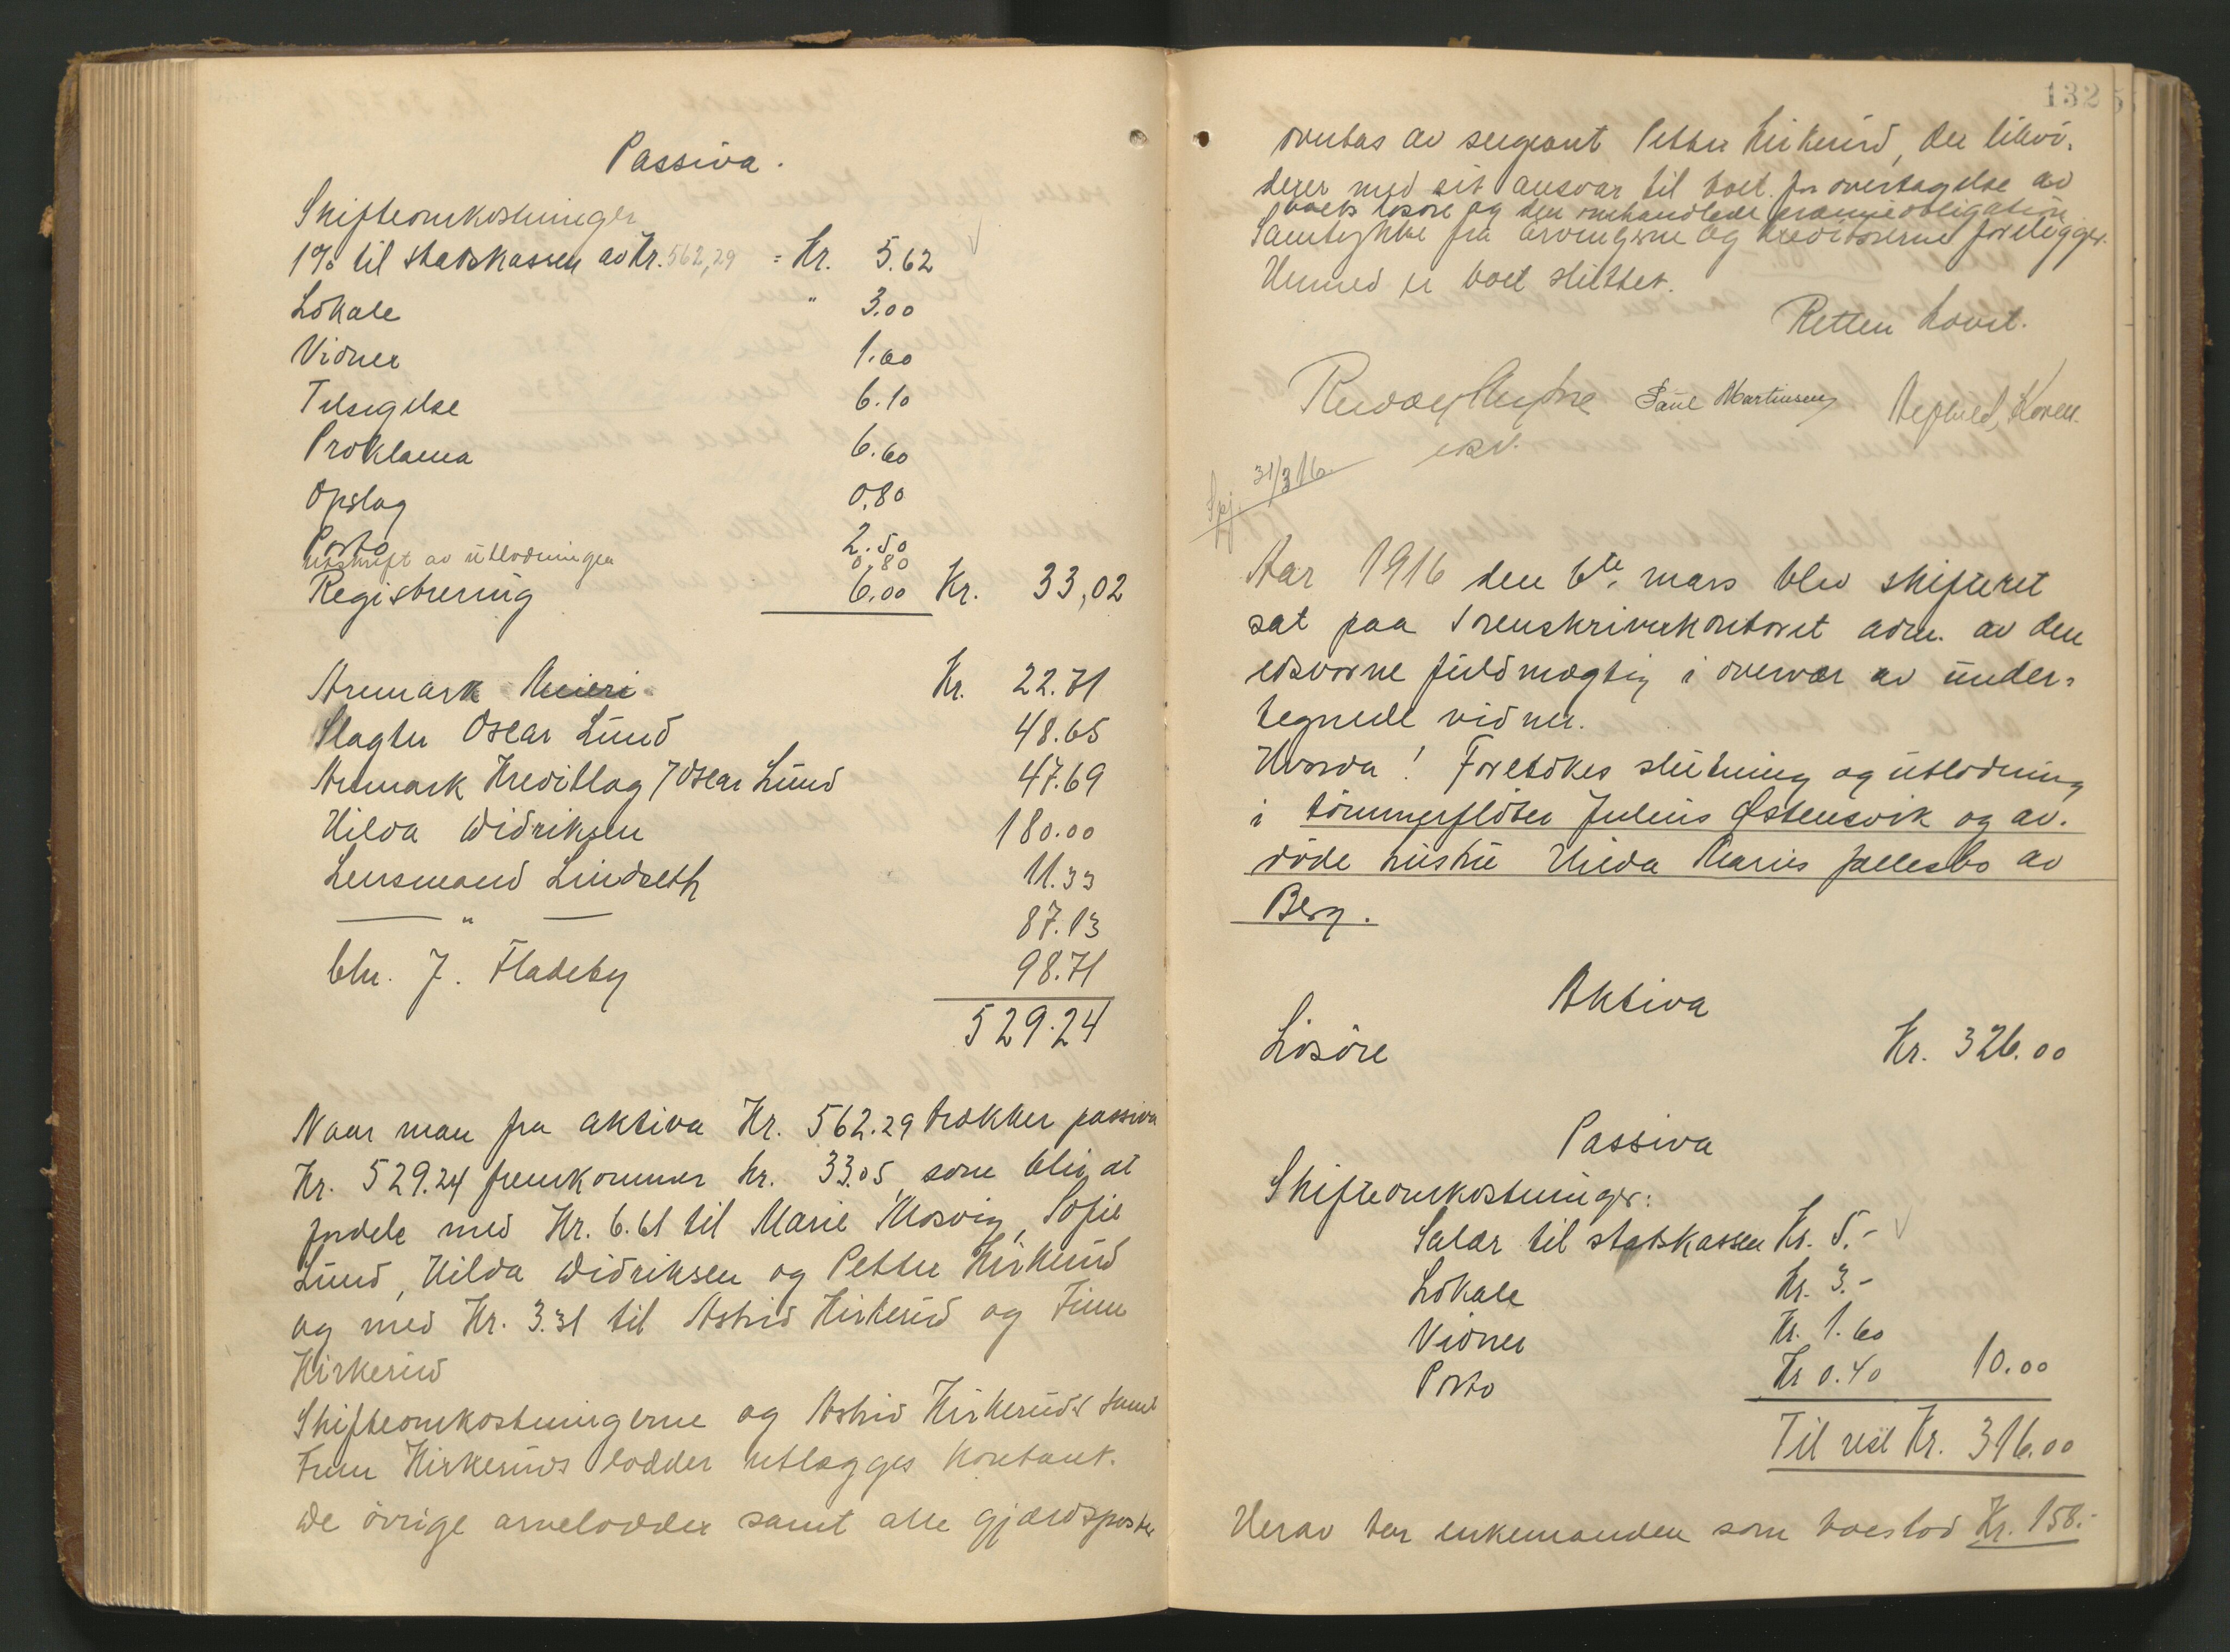 Passiva.
Skifteomkostninger
1% til statskassen av Kr. 562,29 = Kr. 5.62
Lokale " 3.00
Vidner 1.60
Tilsigelse 6.10
Proklama 6.60
Opslag 0.80
Porto 2.50
Utskrift av utlodningen 0.80
Registrering 6.00 Kr. 33,02
Aremark Meieri Kr. 22.71
Slagter Oscar Lund 48.65
Aremark Kreditlag / Oscar Lund 47.69
Hilda Didriksen 180.00
Lensmand Lindseth 11.33
— " — 87.13
Chr. J. Fladeby 98.71
529.24
Naar man fra aktiva Kr. 562.29 trækker passiva
Kr. 529.24 fremkommer kr. 33.05 som bliv at
fordele med Kr. 6.61 til Marie Mosvig, Sofie
Lund, Hilda Didriksen og Petter Kirkerud
og med Kr. 3.31 til Astrid Kirkerud og Finn
Kirkerud
Skifteomkostningerne og Astrid Kirkeruds samt
Finn Kirkeruds lodder utlægges kontant.
De övrige arvelodder samt alle gjældsposter
132
overtas av sergeant Petter Kirkerud, der likvi-
derer med sit ansvar til boet for overtagelse av
boets lösöre og den omhandlede præmieobligation
Samtykke fra arvingerne og kreditorerne foreligger.
Hermed er boet sluttet.
Retten hævet.
Paul Martinsen
esv.
31/3 16.
Aar 1916 den 6te mars blev skifteret
sat paa Sorenskriverkontoret adm. av den
edsvorne fuldmægtig i overvær av under-
tegnede vidner.
Hvorda! Foretokes slutning og utlodning
i tömmerflöter Julius Østensvik og av-
döde hustru Hilda Maries fællesbo av
Berg.
Aktiva
Lösöre Kr. 326.00
Passiva
Skifteomkostninger:
Salær til statskassen Kr. 5.-
Lokale Kr. 3.-
Vidner Kr. 1.60
Porto Kr 0.40 10.00
Til rest Kr. 316.00
Herav tar enkemanden som boeslod Kr. 158.-